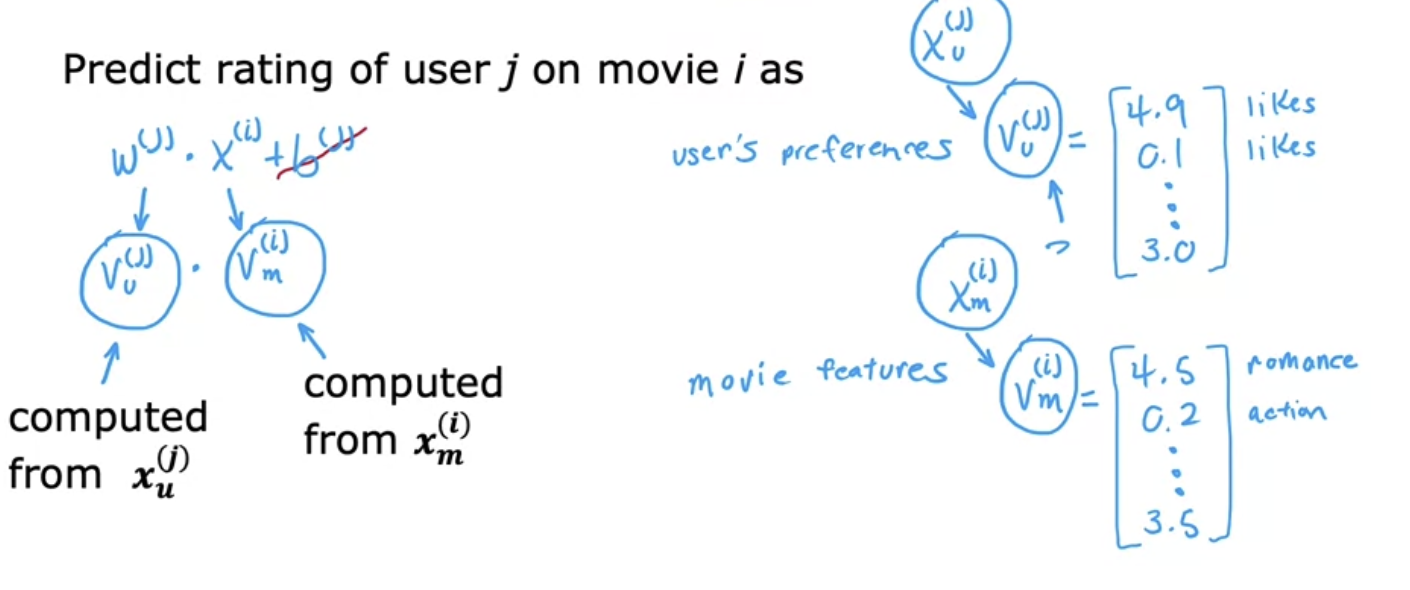 Predict rating of user j on movie i as
w^(j) · x^(i) + b^(j)
v_u^(j) · v_m^(i)
computed from x_u^(j)
computed from x_m^(i)
x_u^(j)
user's preferences v_u^(j) = [4.9 likes
0.1 likes
⋮
3.0]
?
x_m^(i)
movie features v_m^(i) = [4.5 romance
0.2 action
⋮
3.5]